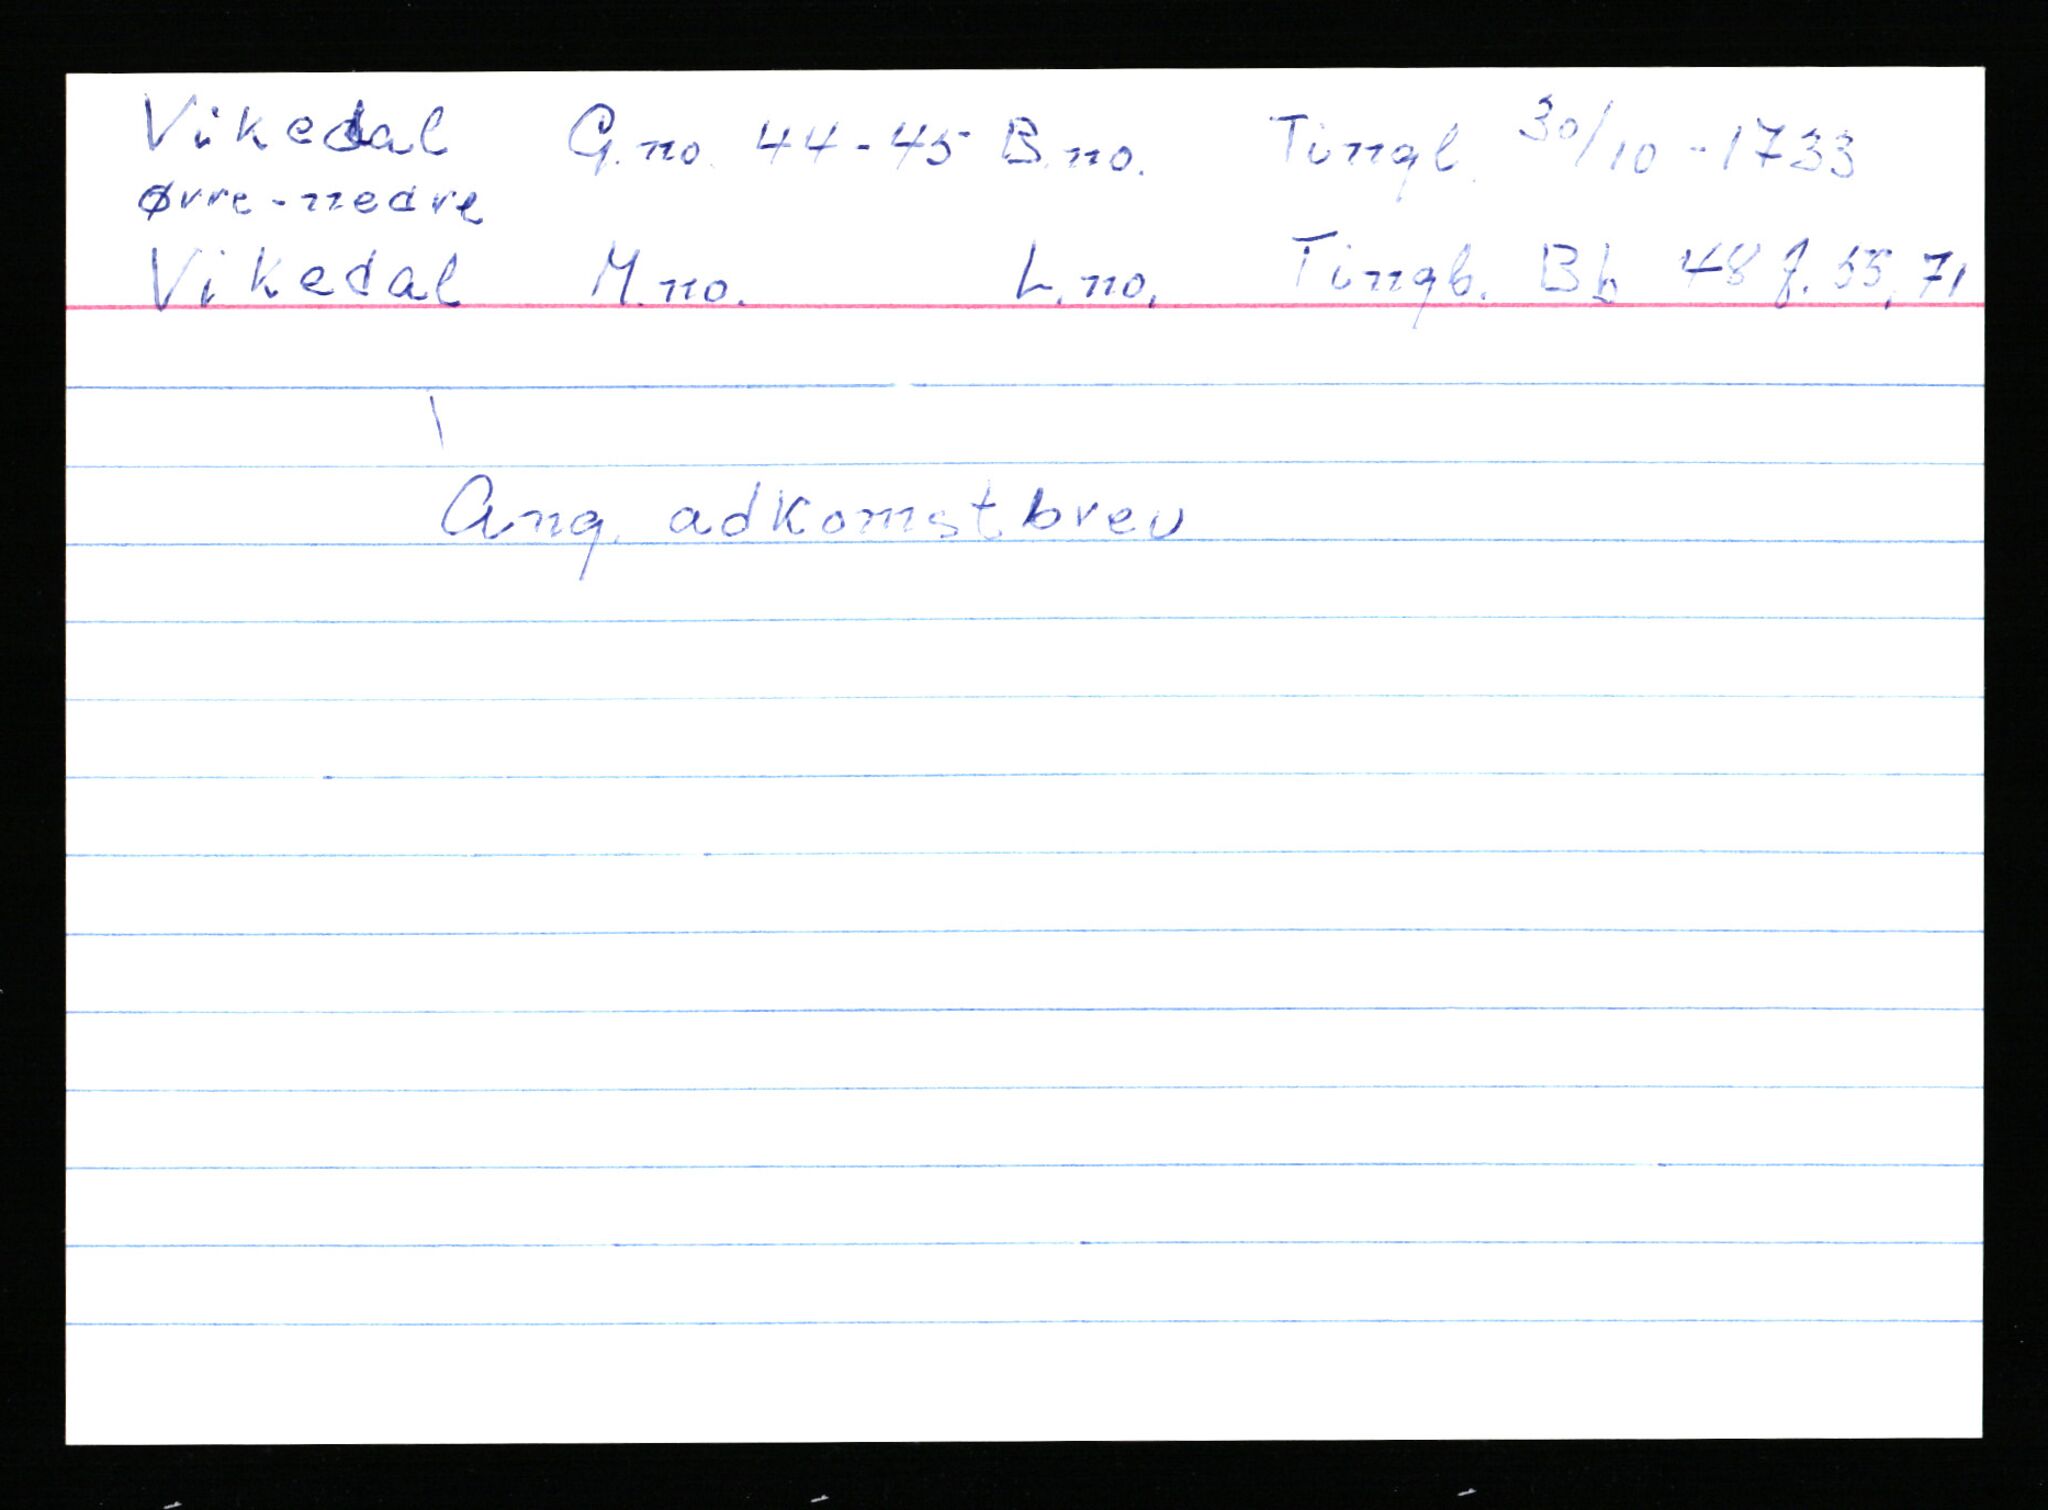 Vikedal G.no. 44-45 B.no. Tingl. 30/10-1733
øvre-nedre
Vikedal M.no. L.no. Tingb. Bb 48 f. 55, 71
Ang. adkomstbrev